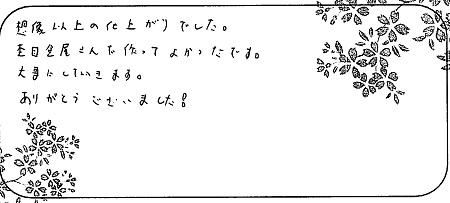 想像以上の仕上がりでした。
杢目金屋さんで作ってよかったです。
大事にしていきます。
ありがとうございました!